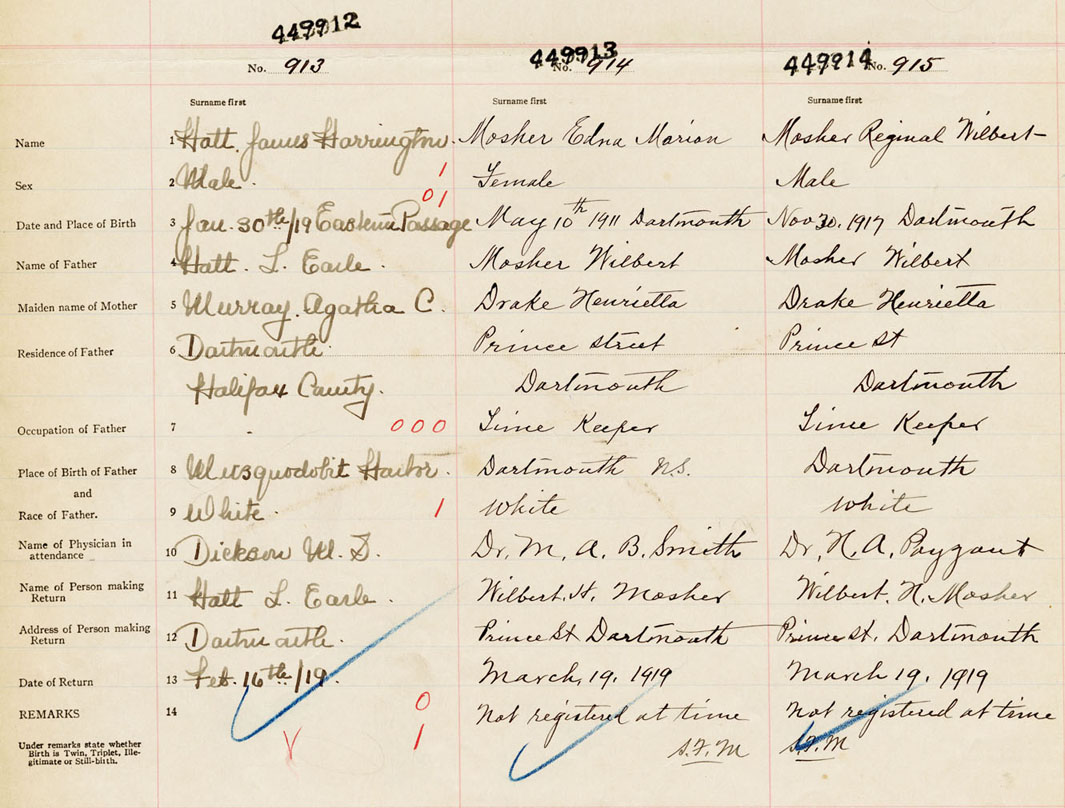 449912 449913 449914
No. 913 No. 914 No. 915
Surname first Surname first Surname first
Name 1 Hatt James Harrington. Mosher Edna Marion Mosher Reginal Wilbert
Sex 2 Male. 1 Female Male
01
Date and Place of Birth 3 Jan. 30th/19 Eastern Passage May 10th 1911 Dartmouth Nov 30, 1917 Dartmouth
Name of Father 4 Hatt. L. Earle. Mosher Wilbert Mosher Wilbert
Maiden name of Mother 5 Murray. Agatha C. Drake Henrietta Drake Henrietta
Residence of Father 6 Dartmouth. Prince Street Prince St
Halifax County. Dartmouth Dartmouth
Occupation of Father 7 - 000 Time Keeper Time Keeper
Place of Birth of Father 8 Musquodobit Harbor. Dartmouth N.S. Dartmouth
and
Race of Father. 9 White. 1 White White
Name of Physician in
attendance 10 Dickson M. S. Dr. M. A. B. Smith Dr. H. A. Payzant
Name of Person making
Return 11 Hatt L. Earle. Wilbert. H. Mosher Wilbert. H. Mosher
Address of Person making
Return 12 Dartmouth. Prince St Dartmouth Prince St. Dartmouth
Date of Return 13 Feb. 16th/19. March, 19, 1919 March 19, 1919
REMARKS 14 0 Not registered at time Not registered at time
Under remarks state whether
Birth is Twin, Triplet, Ille-
gitimate or Still-birth. 1 S.F.M S.F.M